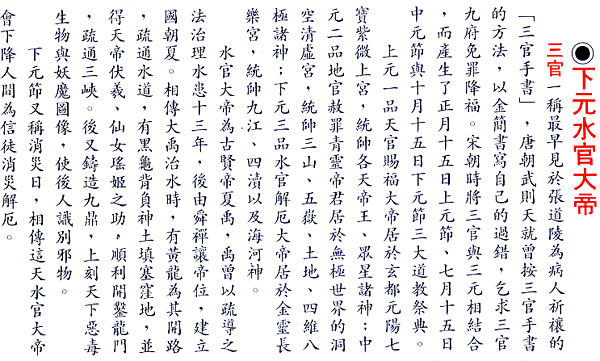 ◉下元水官大帝
三官一稱最早見於張道陵為病人祈禳的
「三官手書」，唐朝武則天就曾按三官手書
的方法，以金簡書寫自己的過錯，乞求三官
九府免罪降福。宋朝時將三官與三元相結合
，而產生了正月十五日上元節、七月十五日
中元節與十月十五日下元節三大道教祭典。
上元一品天官賜福大帝居於玄都元陽七
寶紫微上宮，統帥各天帝王、眾星諸神；中
元二品地官赦罪青靈帝君居於無極世界的洞
空清虛宮，統帥三山、五嶽、土地、四維八
極諸神；下元三品水官解厄大帝居於金靈長
樂宮，統帥九江、四瀆以及海河神。
水官大帝為古賢帝夏禹，禹曾以疏導之
法治理水患十三年，後由舜禪讓帝位，建立
國朝夏。相傳大禹治水時，有黃龍為其開路
，疏通水道，有黑龜背負神土填塞窪地，並
得天帝伏羲、仙女瑤姬之助，順利開鑿龍門
，疏通三峽。後又鑄造九鼎，上刻天下惡毒
生物與妖魔圖像，使後人識別邪物。
下元節又稱消災日，相傳這天水官大帝
會下降人間為信徒消災解厄。